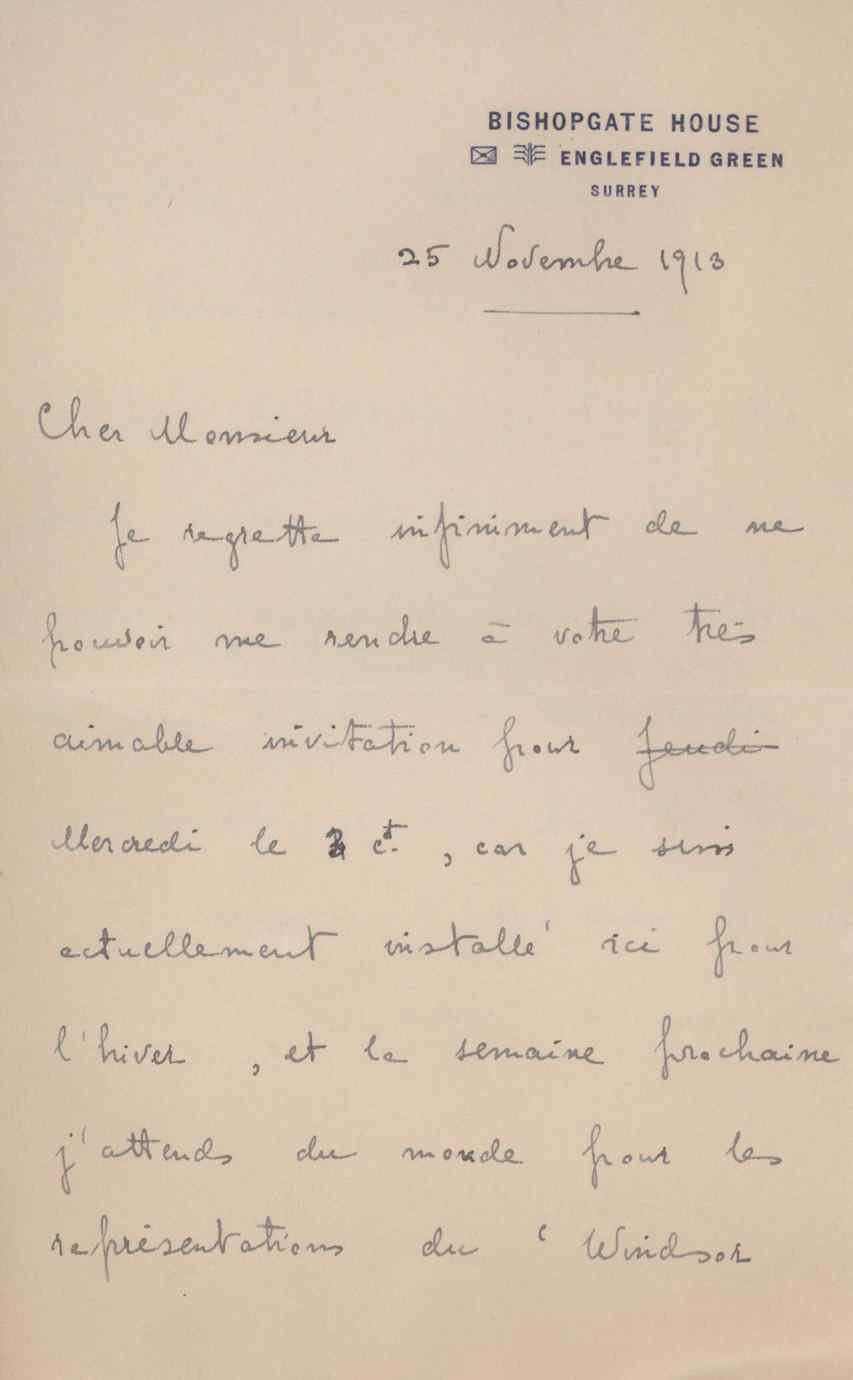 BISHOPGATE HOUSE
ENGLEFIELD GREEN
SURREY
25 Novembre 1913
Cher Monsieur
Je regrette infiniment de ne
pouvoir me rendre à votre très
aimable invitation pour Jeudi
Mercredi le ct. , car je suis
actuellement installé ici pour
l'hiver , et la semaine prochaine
j'attends du monde pour les
représentations du ' Windsor